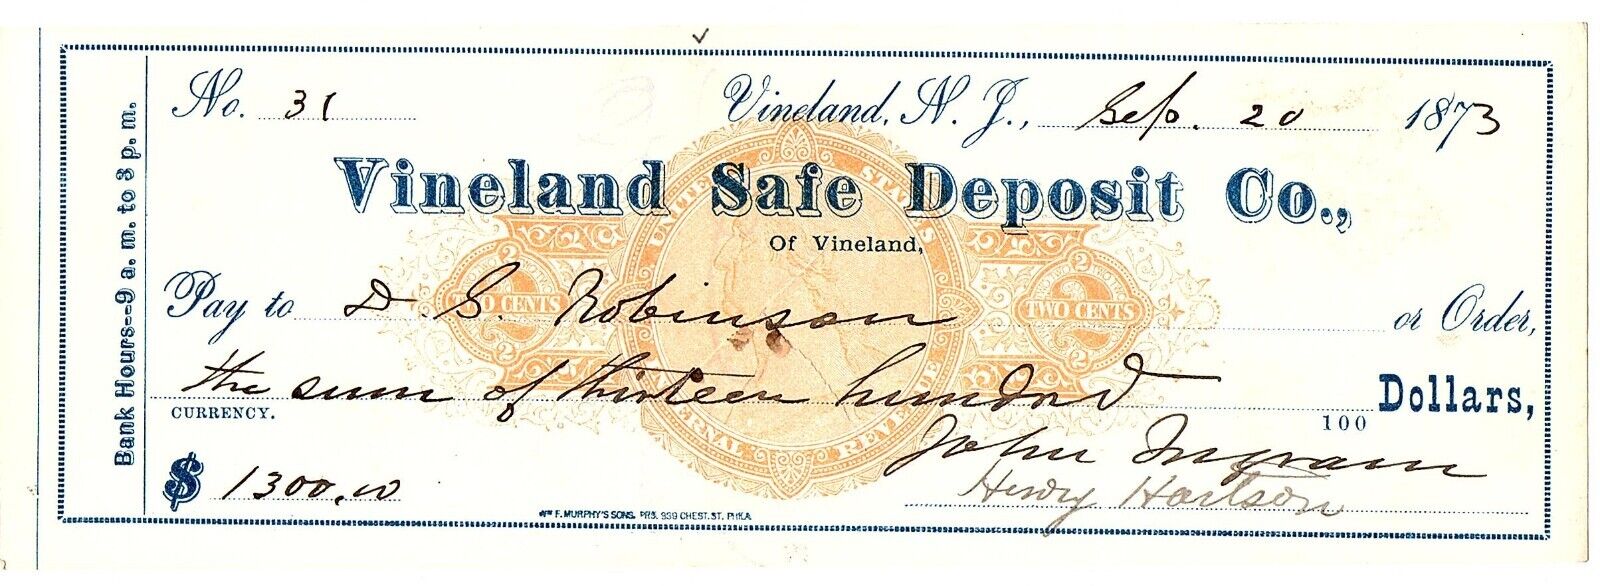 No. 31 Vineland, N. J., Sep. 20 1873
Vineland Safe Deposit Co.,
Of Vineland,
Bank Hours--9 a. m. to 3 p. m.
UNITED STATES
INTERNAL REVENUE
2 TWO CENTS 2
2 TWO CENTS 2
Pay to D S. Robinson or Order,
the sum of thirteen hundred 100 Dollars,
CURRENCY.
$ 1300.00
John Ingram
Henry Hartson
Wm F. MURPHY'S SONS. PRS. 939 CHEST. ST. PHILA.